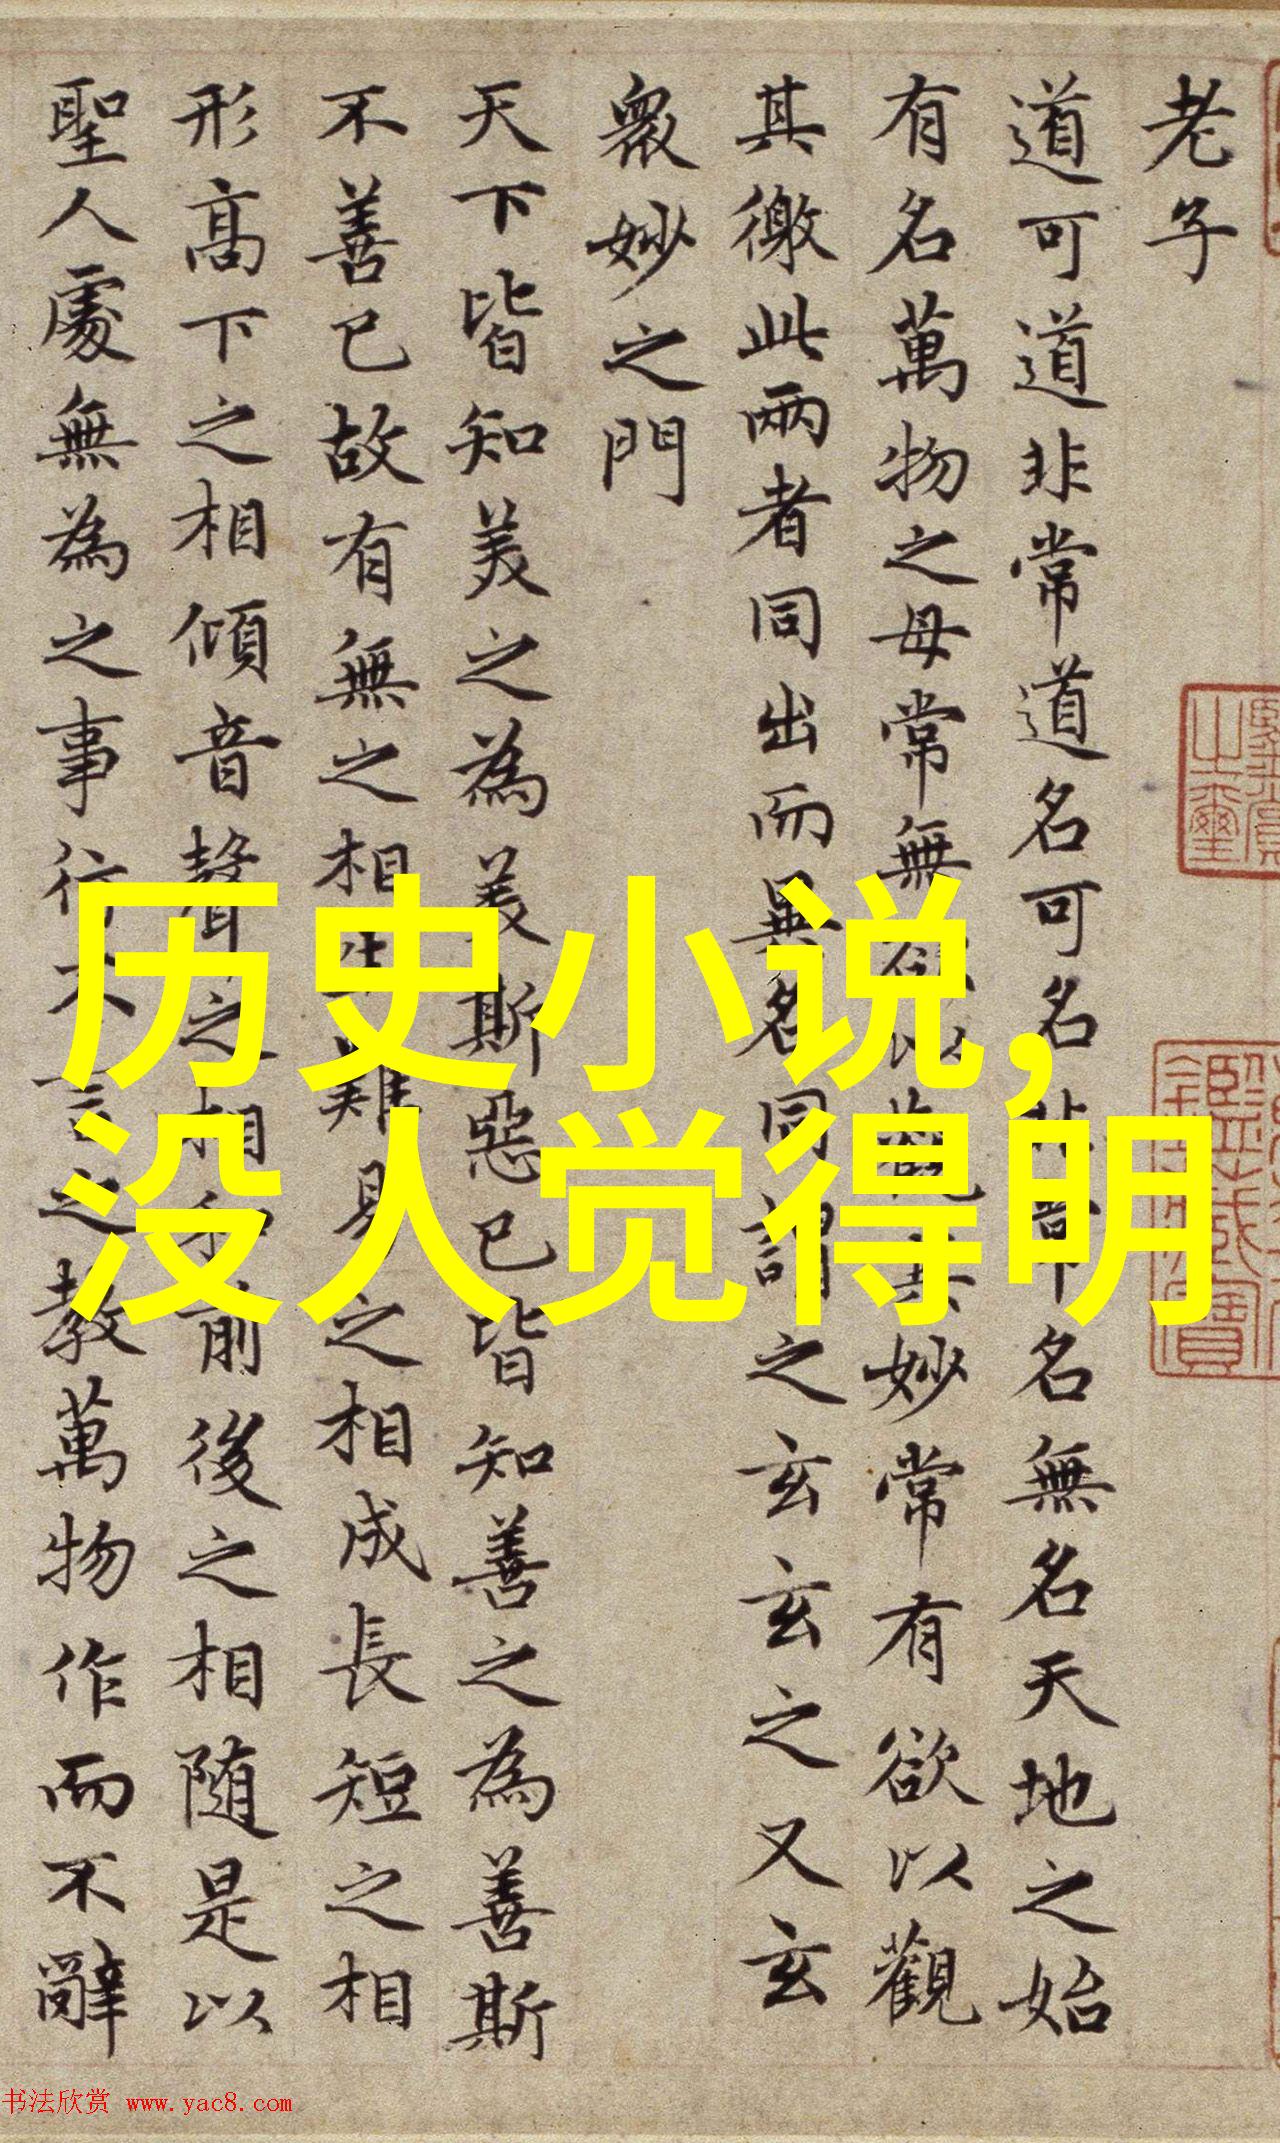 老子
道可道非常道名可名非常名無名天地之始
有名萬物之母常無欲以觀其妙常有欲以觀
其徼此兩者同出而異名同謂之玄玄之又玄
衆妙之門
天下皆知美之為美斯惡已皆知善之為善斯
不善已故有無之相生難易之相成長短之相
形高下之相傾音聲之相和前後之相随是以
聖人處無為之事行不言之教萬物作而不辭
历史小说,
没人觉得明
书法欣赏 www.yac8.com